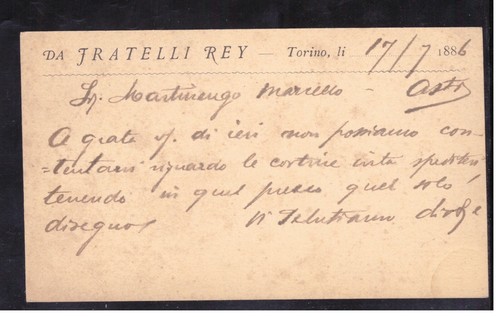 DA FRATELLI REY — Torino, li 17/7 1886
Sig. Martinengo Marcello - Asti
A grata vs. di ieri non possiamo con-
=tentarvi riguardo le cortine
tenendo in quel prezzo quel solo
disegno. Vi salutiamo